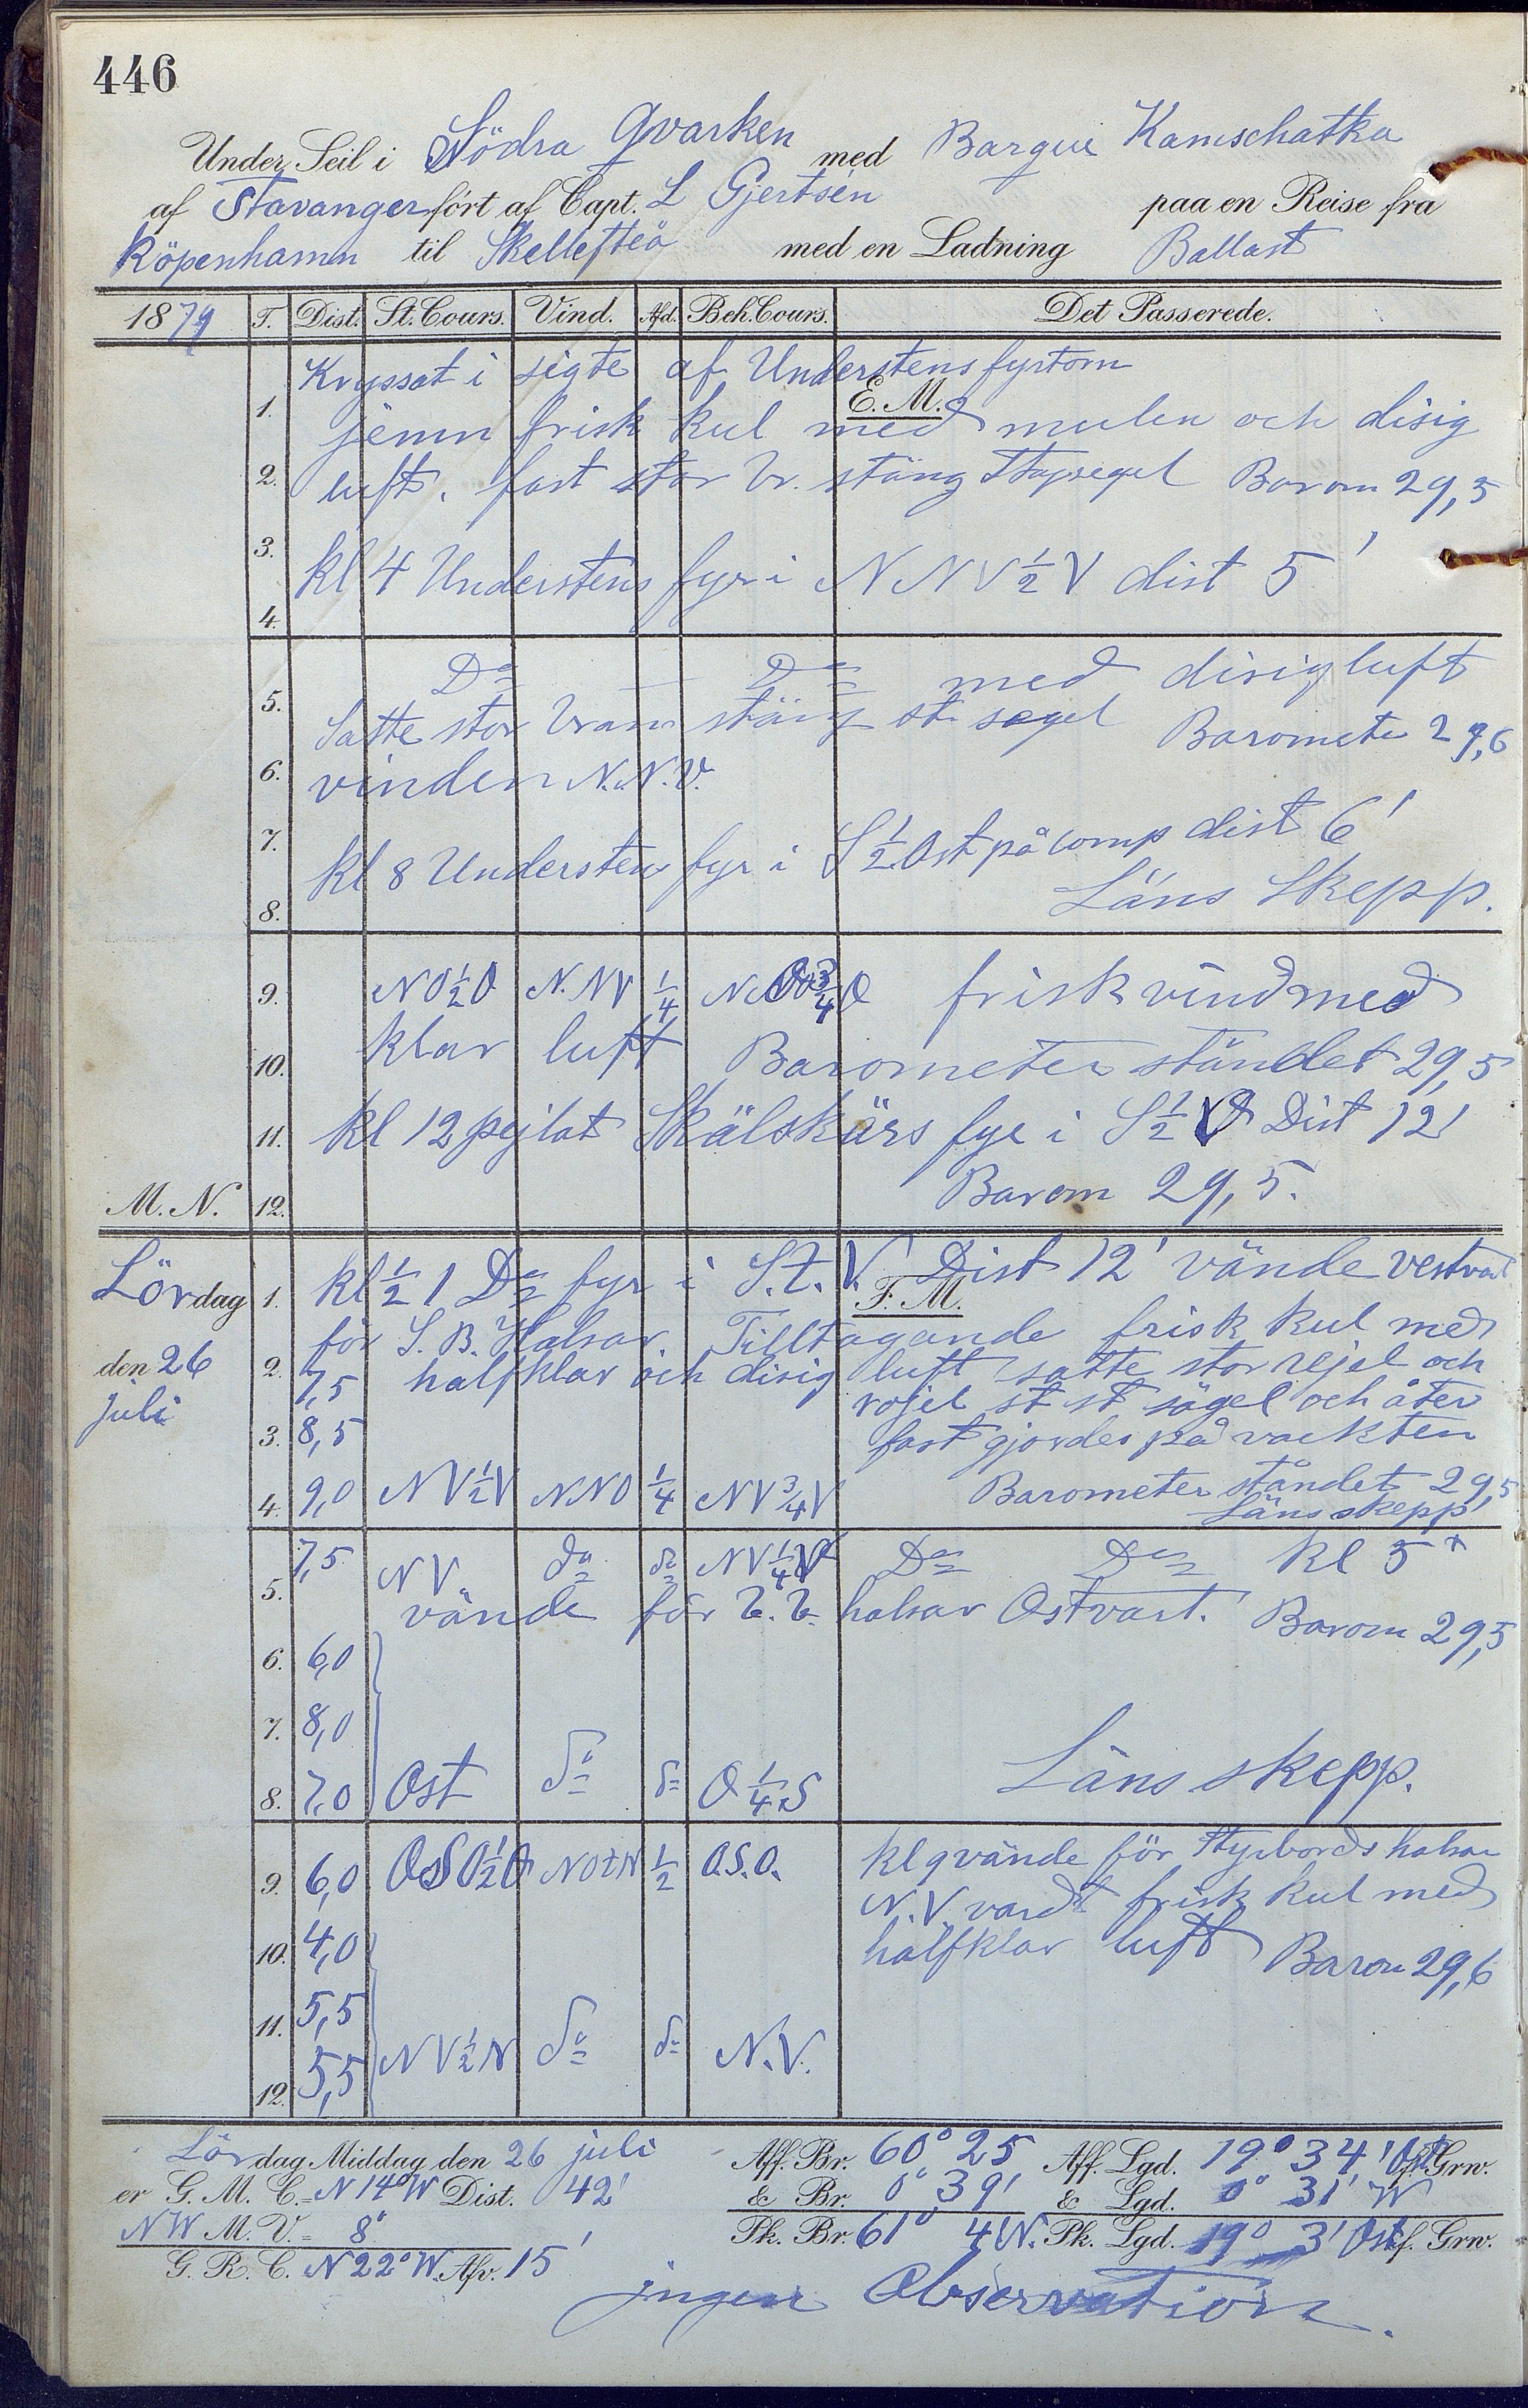 446
Under Seil i Södra Qvarken med Barque Kamschatka
af Stavanger fört af Capt. L Gjertsen paa en Reise fra
Köpenhamn til Skellefteå med en Ladning Ballast
1879 T. Dist. St. Cours. Vind. Afd. Beh. Cours. Det Passerede.
Kryssat i sigte af Understens fyrtorn
1. E. M.
jemn frisk kul med mulen och disig
2. luft. fast stor br. stäng stagsegel Barom 29,5
3.
kl 4 Understens fyr i N N V ½ V dist 5'
4.
Do Do med disig luft
5.
Satte stor bram stäng st. segel Baromete 29,6
6. vinden N.N.V.
7.
kl 8 Understens fyr i S ½ Ost på comp dist 6'
8. Läns Skepp.
9. NO½O N.NV ¼ ¾ O frisk vind med
10. klar luft Barometer ståndet 29,5
11. kl 12 pejlat Skälskärs fyr i S ½ Dist 12'
M. N. 12. Barom 29,5.
Lördag 1. kl ½ 1 Do fyr i S.t.V. Dist 12' vände vestvart
F. M.
för S. B. Halsar. Tilltagande frisk kul med
den 26 2. 7,5 halfklar och disig luft satte stor rejel och
juli rojel st st sägel och åter
3. 8,5 fast gjordes på vackten
4. 9,0 NV½V NNO ¼ NV¾V Barometer ståndet 29,5
Läns skepp
5. 7,5 NV do do NV¼V Do Do kl 5
vände för b. b. halsar Ostvart. Barom 29,5
6. 6,0
7. 8,0
8. 7,0 Ost do do O¼S Läns skepp.
9. 6,0 OSO½O NOtN ½ O.S.O. kl 9 vände för Styrbords halsar
N.V. vardt frisk kul med
10. 4,0 halfklar luft Barom 29,6
11. 5,5
12. 5,5 NV½N do do N.V.
Lördag Middag den 26 juli Aff. Br. 60° 25 Aff. Lgd. 19° 34' Ost f. Grw.
er G. M. C. = N 14° W Dist. 42' & Br. 0° 39' & Lgd. 0° 31' W
NW M. V. = 8° Pk. Br. 61° 4' N. Pk. Lgd. 19° 3' Ost f. Grw.
G. R. C. N 22° W. Afv. 15'
ingen Observation.